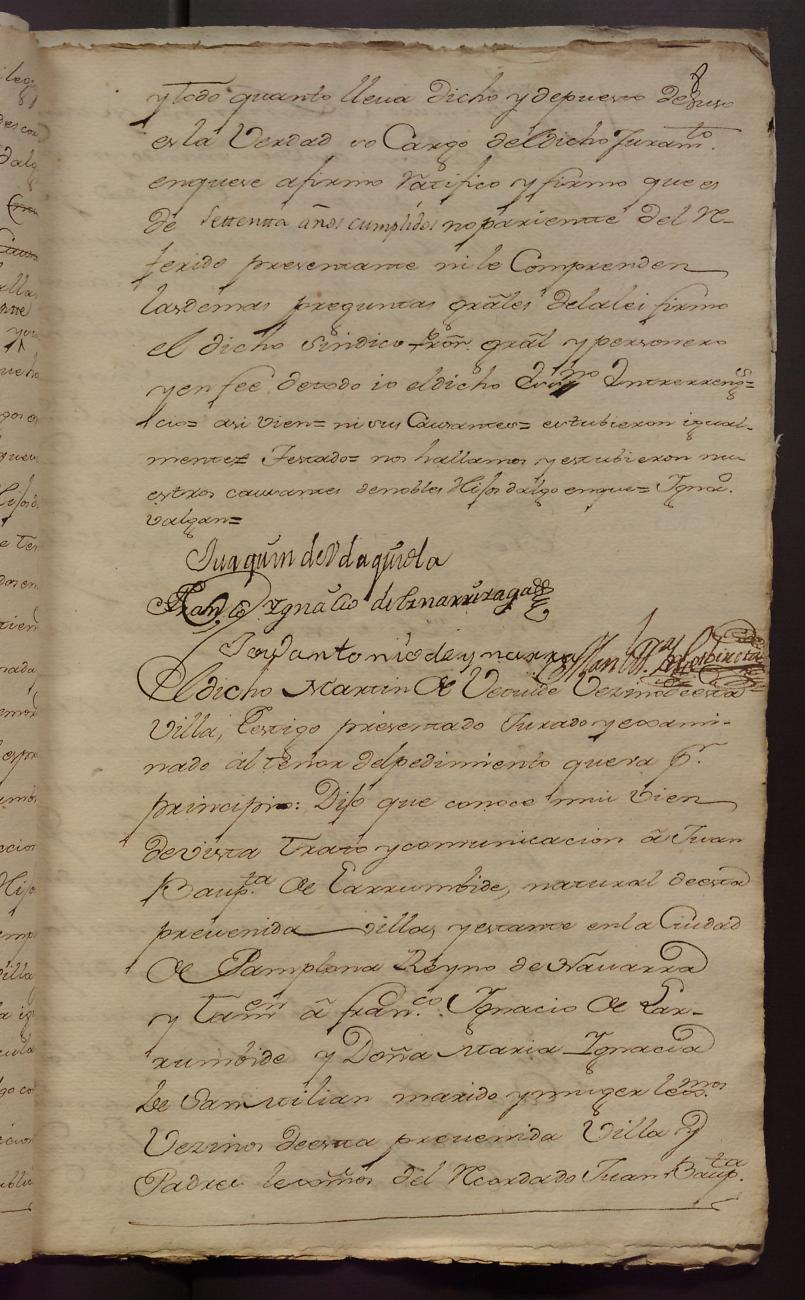 y todo quanto lleva dicho y depuesto de suso
es la Verdad so Cargo del dicho Juram.to
enquese afirmo Ratifico y firmo que es
de Settentta años cumplidos no pariente del Re-
ferido presentante ni le Comprenden
las demas preguntas grãles dela lei firmo
el dicho Sindico Pror. grãl y personero
y en fee de todo io el dicho Essno Entrerreng.s=
lcio= asi vien= ni sus Causantes= estubieron igual-
mente= Testado= nos hallamos y estubieron nu-
estros causantes de nobles Hijos dalgo enque= Igna.o
valgan=
Juaquin de Vdaquiola
Fran.co Ignacio de Ynarrizaga
Jo antonio de ynarra
El dicho Martin de Vezino de esta
Villa, Testigo presentado Jurado y exami-
nado al tenor del pedimiento que va p.r
principio: Dijo que conoce mui vien
de vista trato y comunicacion â Juan
Baup.ta de Larrumbide, natural de esta
prevenida villa, y estante en la Ciudad
de Pamplona Reyno de Navarra
y Tamuen â fran.co Ignacio de Lar-
rumbide y Doña Maria Ignacia
de San milian marido y muger lexmos
Vezinos de esta prevenida Villa y
Padres lexmos del Recordado Juan Baup.ta